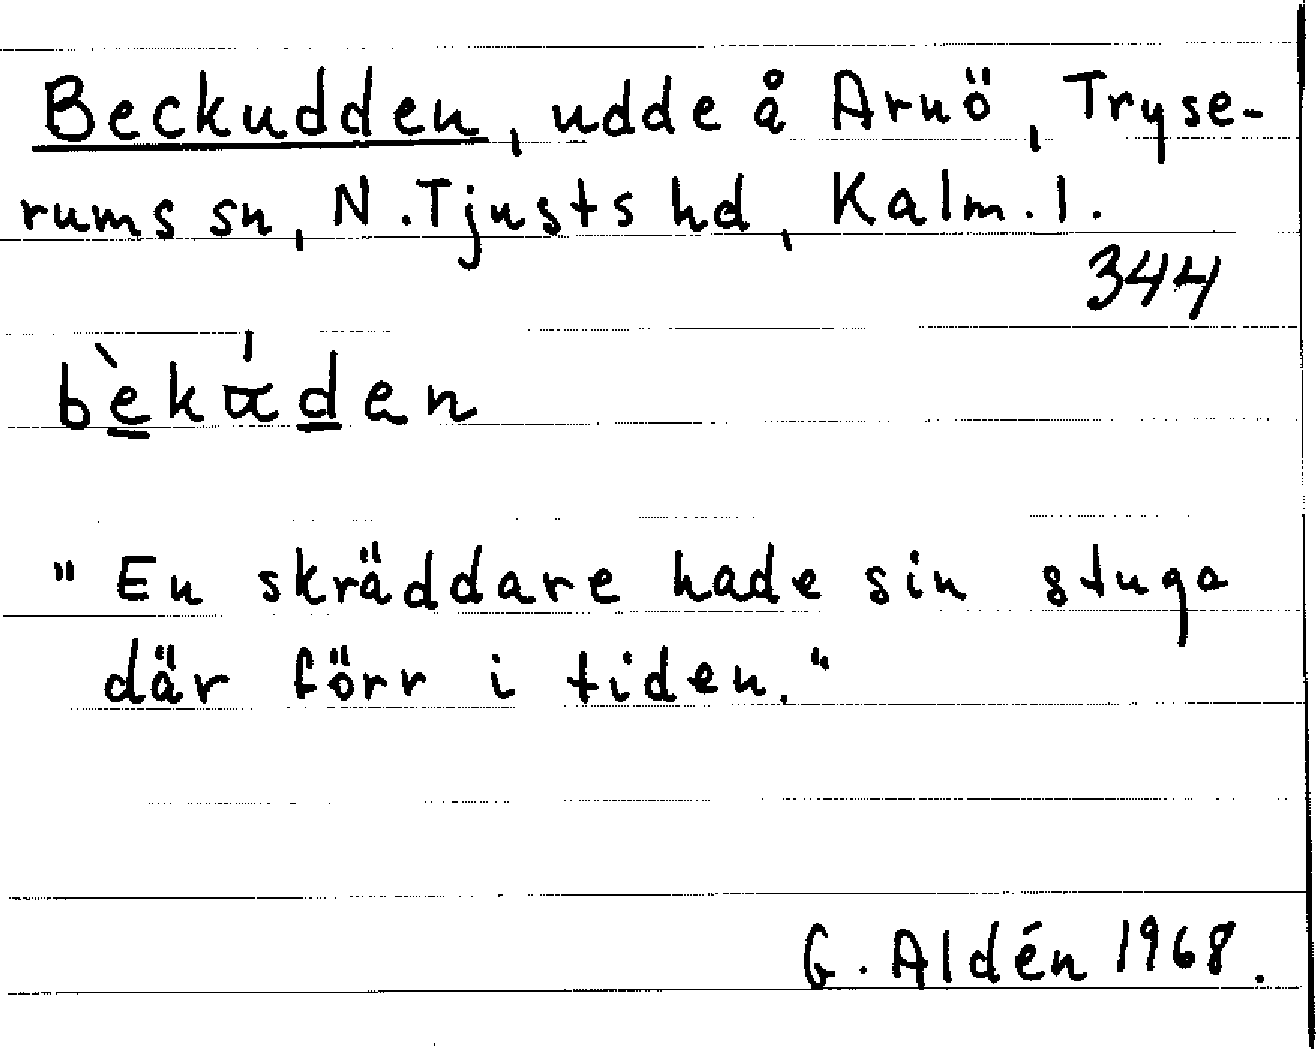 Beckudden, udde å Arnö, Tryse-
rums sn, N. Tjusts hd, Kalm. l.
344
bèkɑ́den
"En skräddare hade sin stuga
där förr i tiden."
G. Aldén 1968.